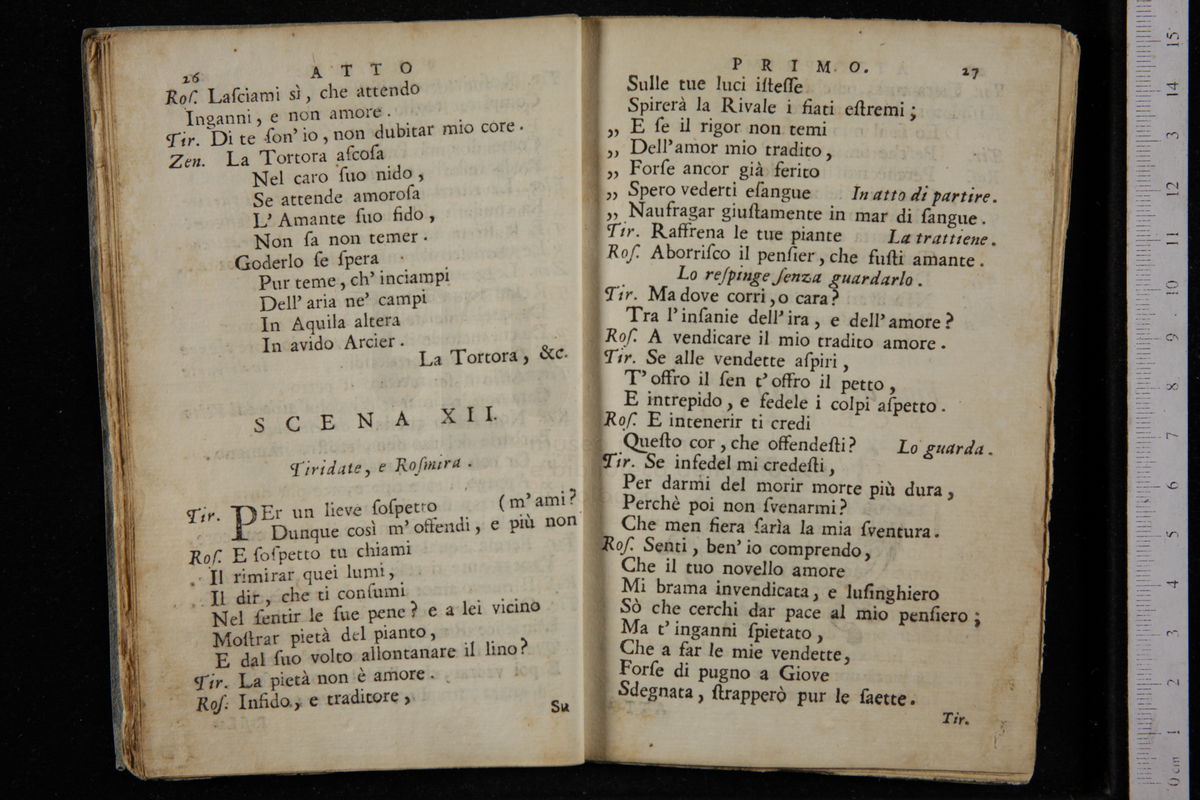 26 ATTO
Roſ. Laſciami sì, che attendo
Inganni, e non amore.
Tir. Di te ſon' io, non dubitar mio core.
Zen. La Tortora aſcoſa
Nel caro ſuo nido,
Se attende amoroſa
L' Amante ſuo fido,
Non ſa non temer.
Goderlo ſe ſpera
Pur teme, ch' inciampi
Dell' aria ne' campi
In Aquila altera
In avido Arcier.
La Tortora, &c.
SCENA XII.
Tiridate, e Roſmira.
Tir. PEr un lieve ſoſpetto (m' ami?
Dunque così m' offendi, e più non
Roſ. E ſoſpetto tu chiami
Il rimirar quei lumi,
Il dir, che ti conſumi
Nel ſentir le ſue pene? e a lei vicino
Moſtrar pietà del pianto,
E dal ſuo volto allontanare il lino?
Tir. La pietà non è amore.
Roſ. Infido, e traditore,
Su
PRIMO. 27
Sulle tue luci iſteſſe
Spirerà la Rivale i fiati eſtremi;
„ E ſe il rigor non temi
„ Dell' amor mio tradito,
„ Forſe ancor già ferito
„ Spero vederti eſangue In atto di partire.
„ Naufragar giuſtamente in mar di ſangue.
Tir. Raffrena le tue piante La trattiene.
Roſ. Aborriſco il penſier, che fuſti amante.
Lo reſpinge ſenza guardarlo.
Tir. Ma dove corri, o cara?
Tra l' inſanie dell' ira, e dell' amore?
Roſ. A vendicare il mio tradito amore.
Tir. Se alle vendette aſpiri,
T' offro il ſen t' offro il petto,
E intrepido, e fedele i colpi aſpetto.
Roſ. E intenerir ti credi
Queſto cor, che offendeſti? Lo guarda.
Tir. Se infedel mi credeſti,
Per darmi del morir morte più dura,
Perchè poi non ſvenarmi?
Che men fiera ſarìa la mia ſventura.
Roſ. Senti, ben' io comprendo,
Che il tuo novello amore
Mi brama invendicata, e luſinghiero
Sò che cerchi dar pace al mio penſiero;
Ma t' inganni ſpietato,
Che a far le mie vendette,
Forſe di pugno a Giove
Sdegnata, ſtrapperò pur le ſaette.
Tir.
0 cm 1 2 3 4 5 6 7 8 9 10 11 12 13 14 15